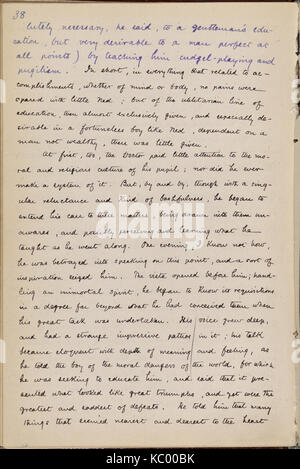 38
lutely necessary, he said, to a gentleman's edu-
cation, but very desirable to a man perfect at
all points) by teaching him cudgel-playing and
pugilism. In short, in everything that related to ac-
complishments, whether of mind or body, no pains were
spared with little Ned; but of the utilitarian line of
education, then almost exclusively given, and especially de-
sirable in a fortuneless boy like Ned, dependent on a
man not wealthy, there was little given.
At first, too, the Doctor paid little attention to the mo-
ral and religious culture of his pupil; nor did he ever
make a system of it. But, by and by, though with a singu-
lar reluctance and kind of bashfulness, he began to
extend his care to these matters, being drawn into them un-
awares, and possibly perceiving and learning what he
taught as he went along. One evening, I know not how,
he was betrayed into speaking on this point, and a sort of
inspiration seized him. The vista opened before him; hand-
ling an immortal spirit, he began to know its requisitions
in a degree far beyond what he had conceived them when
his great task was undertaken. His voice grew deep,
and had a strange impressive pathos in it; his talk
became eloquent with depth of meaning and feeling, as
he told the boy of the moral dangers of the world, for which
he was seeking to educate him, and said that it pre-
sented what looked like great triumphs, and yet were the
greatest and saddest of defeats. He told him that many
things that seemed nearest and dearest to the heart
alamy
alamy stock photo
KC00BK